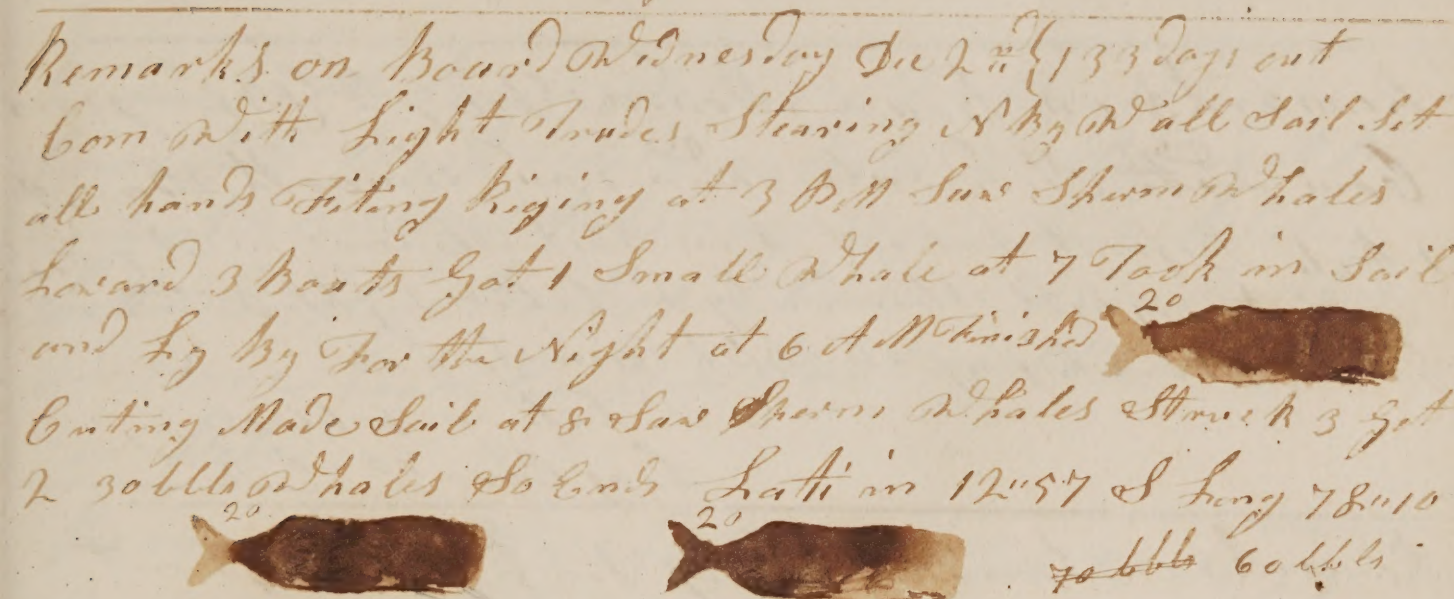 Remarks on Board Wednesday Dec 2nd { 133 days out
Com With Light Trades Stearing N By W all Sail Set
all hands Fiting Riging at 3 P M Saw Sperm Whales
Loward 3 Boats Got 1 Small Whale at 7 Took in Sail
and Ly By For the Night at 6 A M Finished
20
Cuting Made Sail at 8 Saw Sperm Whales Struck 3 Got
2 30 bbls Whales So Ends Lati in 12"57 S Long 78"10
20 20
70 bbls 60 bbls